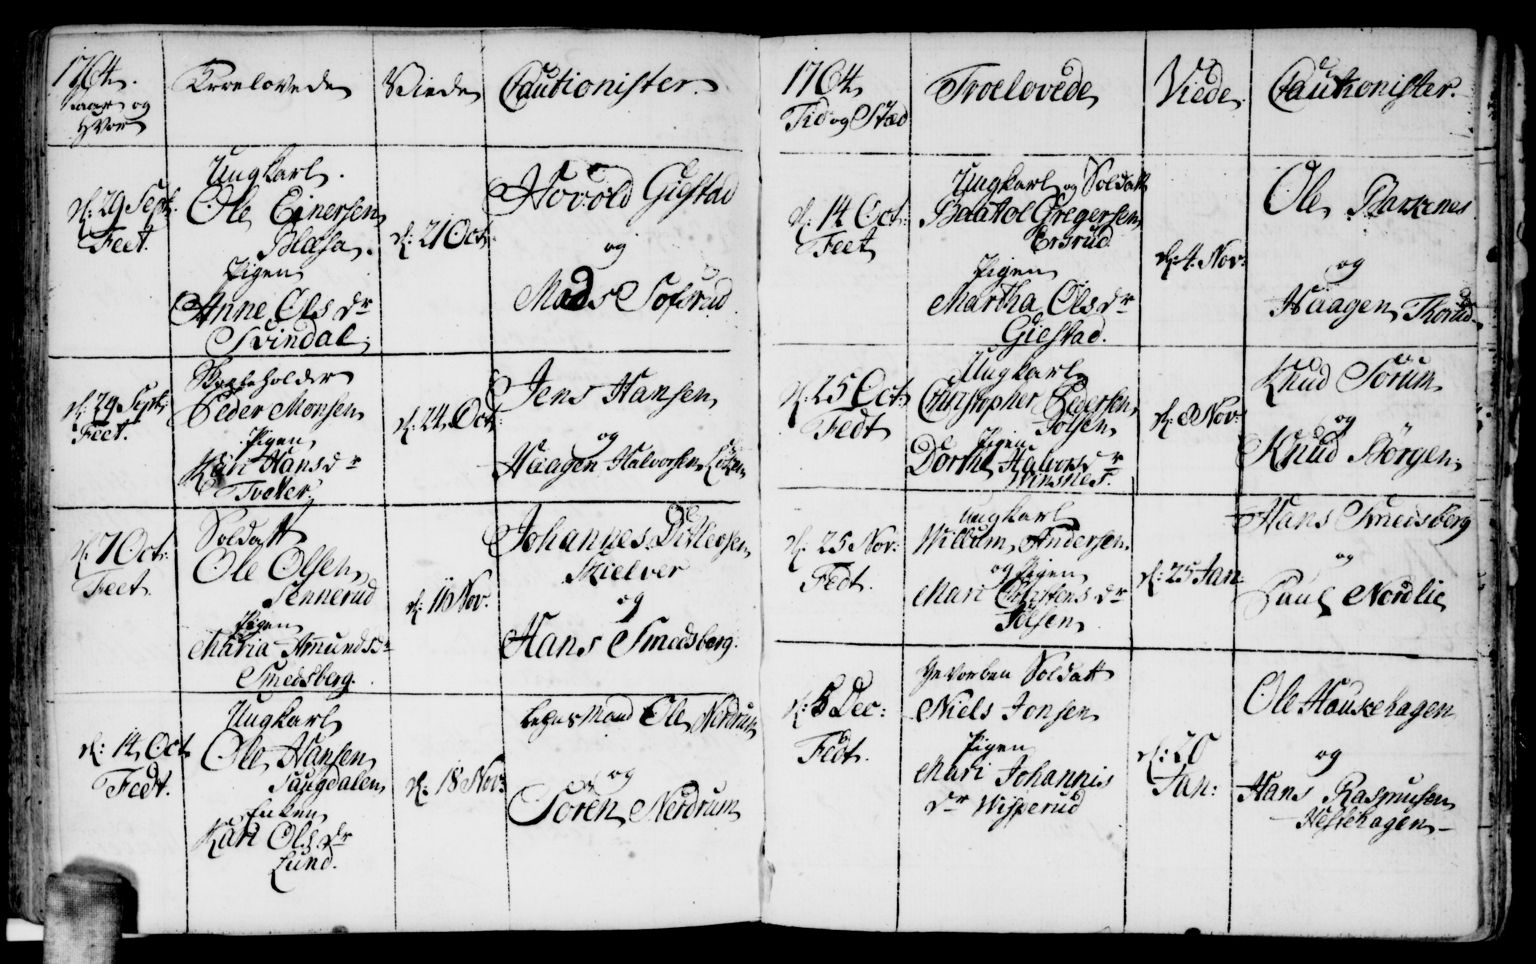 1764.
Aar og
Hvor
Troelovede
Viede
Cautionister.
d: 29 Sept:
Feet.
Ungkarl.
Ole Einersen
Blæsa.
Pigen
Anne Ols dr
Svindal.
d: 21 Oct:
Hovold Giestad
og
Mads Solsrud
d: 29 Sept:
Feet.
Peder Monsen
Pigen
Kari Hans dr
Tvetter.
d: 24 Oct:
Jens Hansen
og
Haagen Halvorsen
d: 7 Oct:
Feet.
Soldatt
Ole Olsen
Tennerud
Pigen
Maria Amunds dr
Smedsberg.
d: 11 Nov.
Johannes Ditlevsen
Skielver
og
Hans Smedsberg.
d: 14 Oct
Fedt.
Ungkarl
Ole Hansen
Saugdalen
Enken
Kari Ols dr
Lund.
d: 18 Nov:
Ole Nerdrum
og
Sören Nerdrum
1764
Tid og Stæd
Troelovede
Viede.
Cautionister.
d: 14 Oct:
Feet
Ungkarl og Soldatt
Baatol Gregersen
Ersrud
Pigen
Martha Ols dr
Giestad.
d: 4. Nov:
Ole Barknes
og
Haagen Thorud
d: 25 Oct:
Fedt
Ungkarl
Christopher Pedersen
Tolsen
Pigen
Dorthe Halvors dr
Winsnes.
d: 8 Nov:
Knud Sorum
og
Knud Börgen.
d: 25 Nov:
Fedt.
Ungkarl
Willum Andersen
og Pigen
Mari Christens dr
Tolsen
d: 25 Jan:
Hans Smedsberg
og
Paul Nordlie
d: 5 Dec:
Fedt.
Gevorben Soldatt
Niels Jonsen
Pigen
Mari Johannis
dr Wisperud
d: 20
Jan:
Ole Houskehagen
og
Hans Rasmusen
Hestehagen